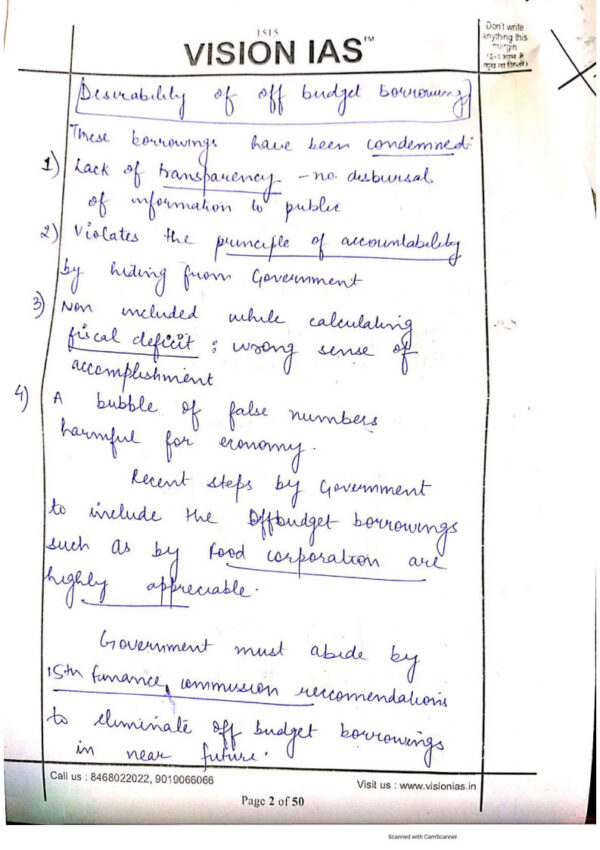 1515
VISION IAS™
Don't write
anything this
margin
Desirability of off budget borrowing
These borrowings have been condemned:
1) Lack of transparency - no disbursal
of information to public
2) Violates the principle of accountability
by hiding from Government
3) Non included while calculating
fiscal deficit : wrong sense of
accomplishment
4) A bubble of false numbers
harmful for economy.
Recent steps by Government
to include the Offbudget borrowings
such as by Food corporation are
highly appreciable.
Government must abide by
15th Finance commission reccomendations
to eliminate off budget borrowings
in near future.
Call us : 8468022022, 9019066066
Visit us : www.visionias.in
Page 2 of 50
Scanned with CamScanner